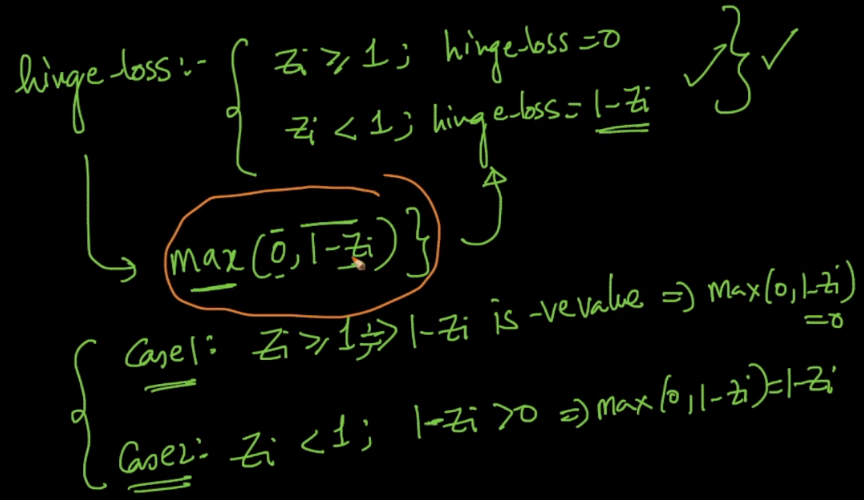 hinge-loss:- { Zi ≥ 1; hinge-loss = 0
Zi < 1; hinge-loss = 1-Zi } ✓ ✓
max(0, 1-Zi) }
Case1: Zi ≥ 1; => 1-Zi is -ve value => max(0, 1-Zi)
= 0
Case2: Zi < 1; 1-Zi > 0 => max(0, 1-Zi) = 1-Zi